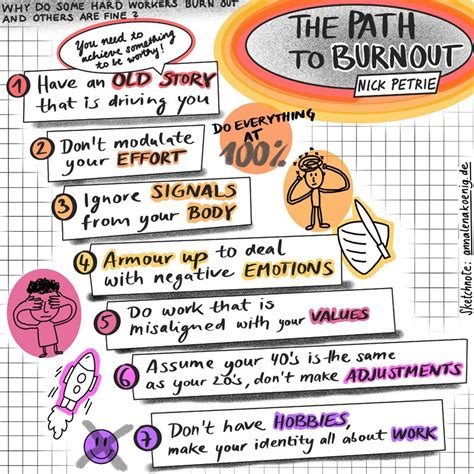 WHY DO SOME HARD WORKERS BURN OUT
AND OTHERS ARE FINE?
THE PATH
TO BURNOUT
NICK PETRIE
You need to
achieve something
to be worthy!
1 Have an OLD STORY
that is driving you
2 Don't modulate
your EFFORT
DO EVERYTHING
AT
100%
3 Ignore SIGNALS
from your BODY
4 Armour up to deal
with negative EMOTIONS
5 Do work that is
misaligned with your VALUES
6 Assume your 40's is the same
as your 20's, don't make ADJUSTMENTS
7 Don't have HOBBIES,
make your identity all about WORK
Sketchnote: annalenakoenig.de